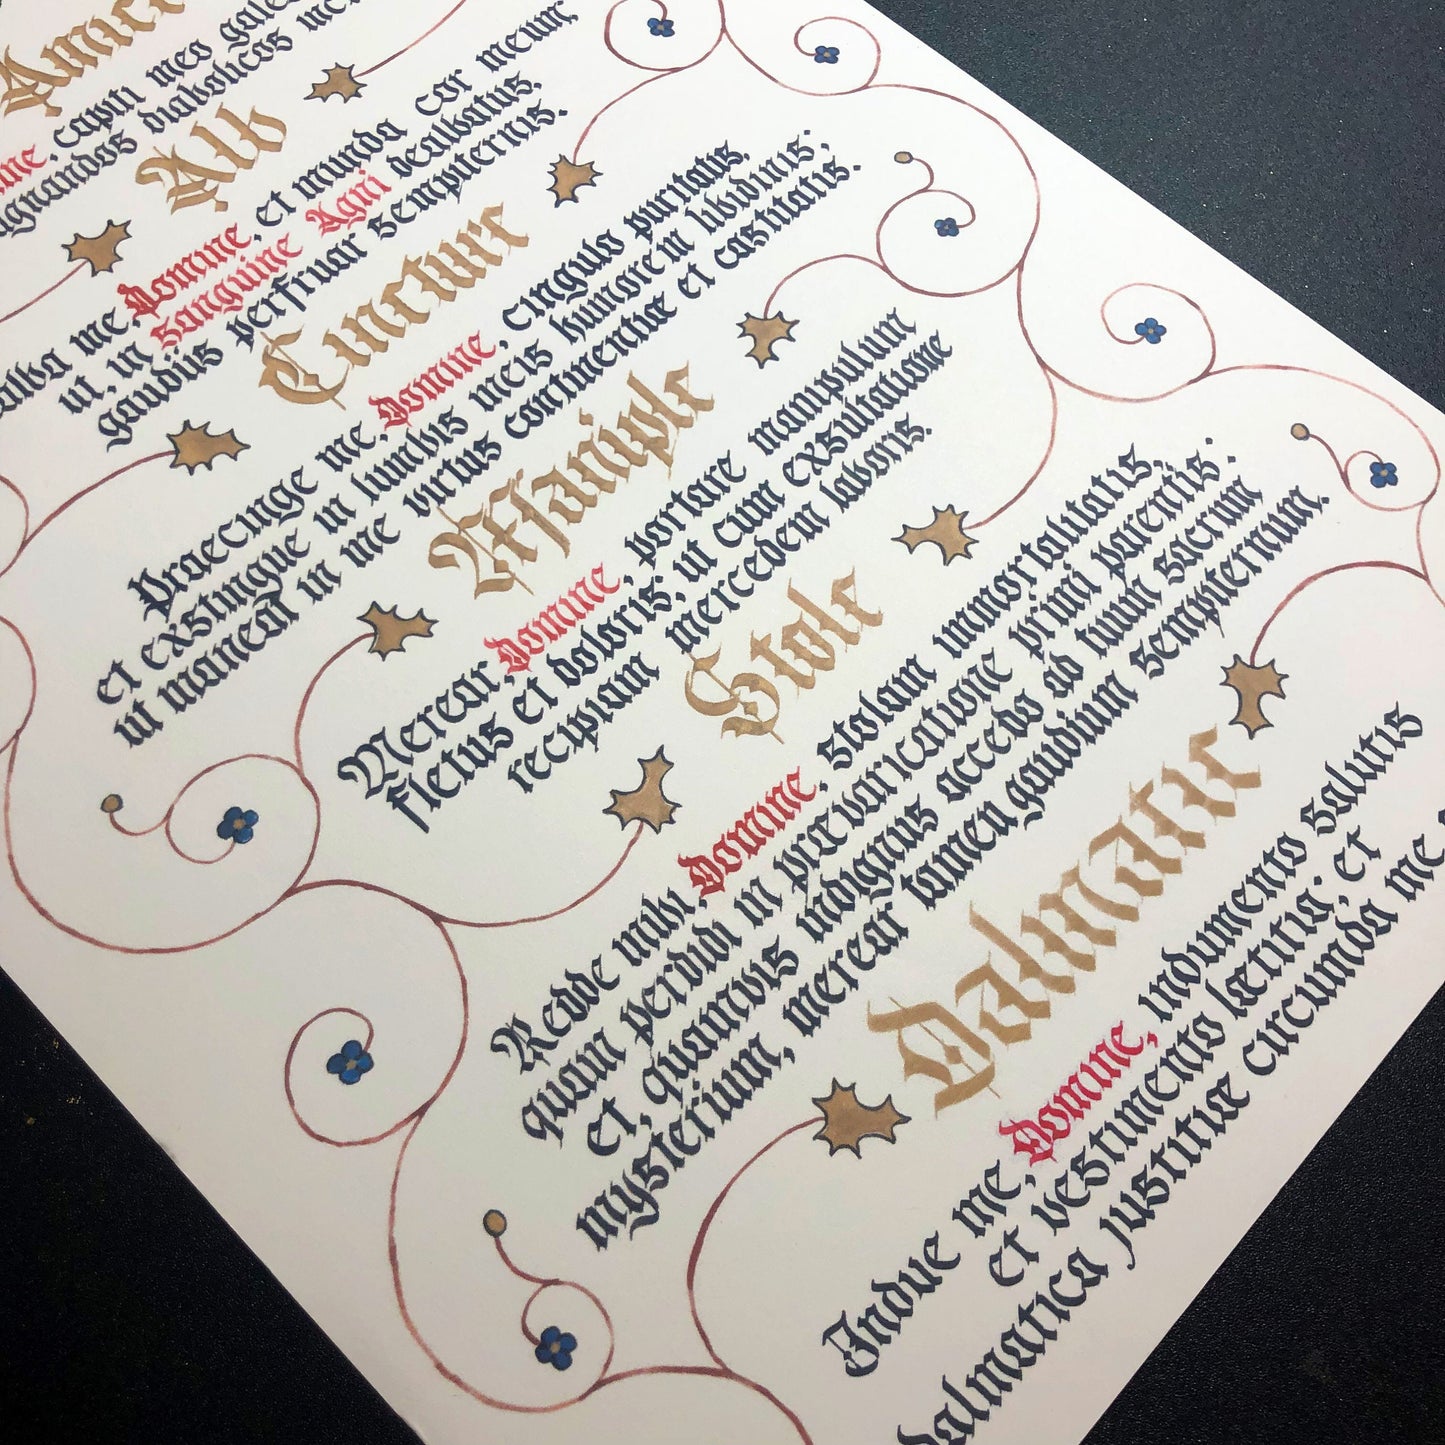 Amice
ine, capiti meo galea
ignandos diabolicos inc
Alb
ealba me, Domine, et munda cor meum,
ut, in sanguine Agni dealbatus,
gaudiis perfruar sempiternis.
Cincture
Praecinge me, Domine, cingulo puritatis,
et exstingue in lumbis meis humorem libidinis;
ut maneat in me virtus continentiæ et castitatis.
Maniple
Merear, Domine, portare manipulum
fletus et doloris; ut cum exsultatione
recipiam mercedem laboris.
Stole
Redde mihi, Domine, stolam immortalitatis,
quam perdidi in prævaricatione primi parentis:
et, quamvis indignus accedo ad tuum sacrum
mysterium, merear tamen gaudium sempiternum.
Dalmatic
Indue me, Domine, indumento salutis
et vestimento lætitiæ; et
dalmatica justitiæ circumda me